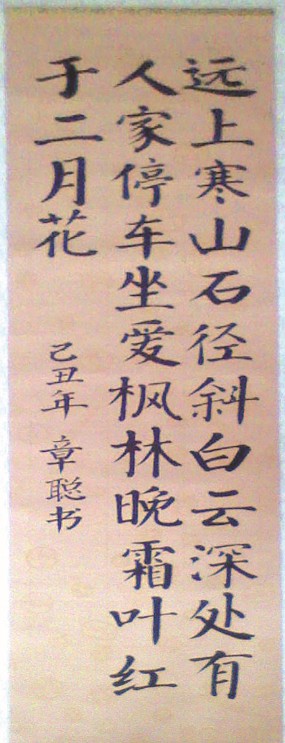 远上寒山石径斜白云深处有
人家停车坐爱枫林晚霜叶红
于二月花
己丑年 章聪书